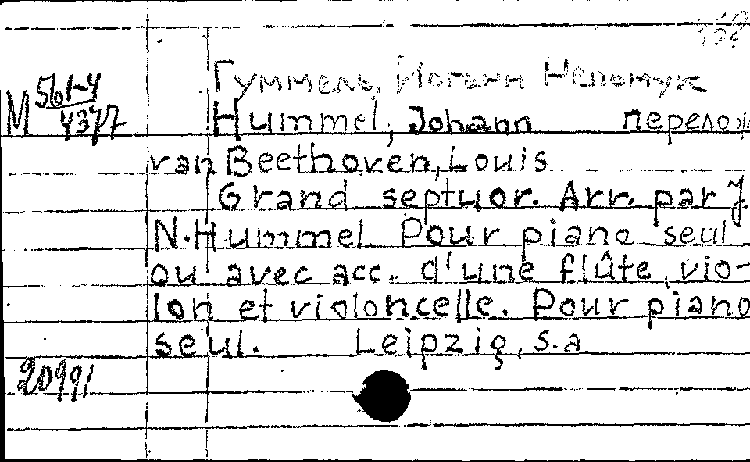 Гуммель, Иоганн Непомук
М 561-4/4377
Hummel, Johann перелож
van Beethoven, Louis
Grand septuor. Arr. par J.
N. Hummel. Pour piano seul
ou avec acc. d'une flûte, vio-
lon et violoncelle. Pour piano
seul. Leipzig, s.a
20991